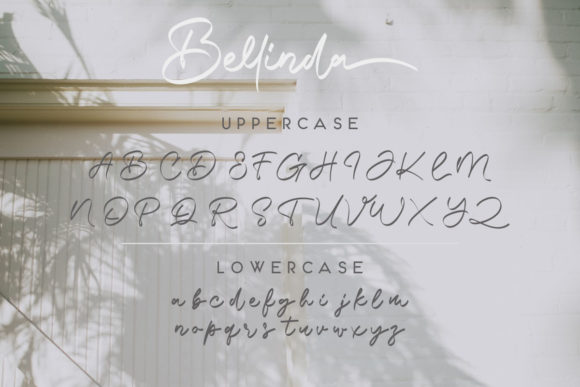 Bellinda
UPPERCASE
A B C D E F G H I J K L M
N O P Q R S T U V W X Y Z
LOWERCASE
a b c d e f g h i j k l m
n o p q r s t u v w x y z